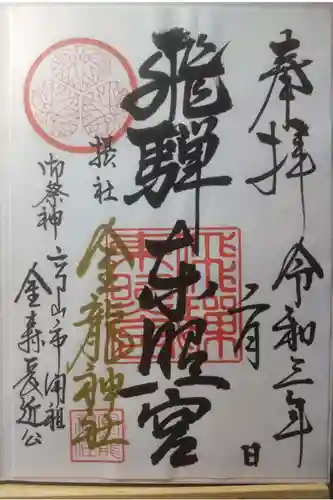 奉拝
令和三年
二月 日
飛騨東照宮
飛騨東照宮
摂社
金龍神社
御祭神 高山市開祖
金森長近公